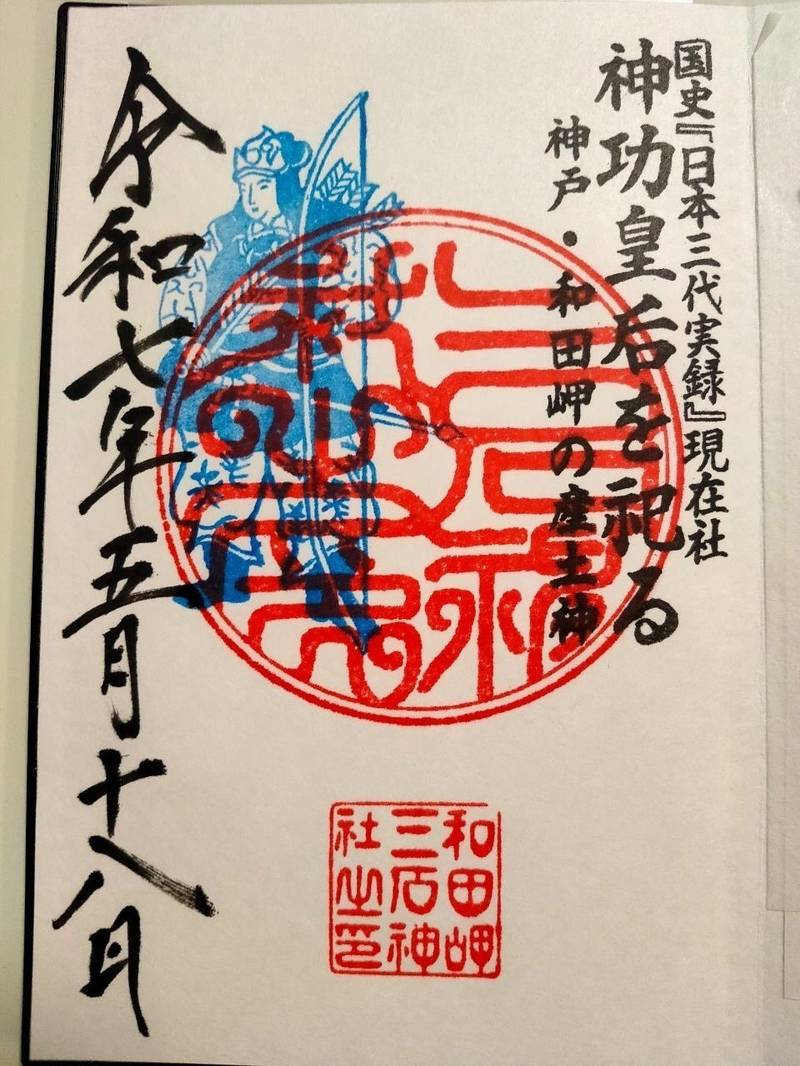 国史『日本三代実録』現在社
神功皇后を祀る
神戸・和田岬の産土神
令和七年五月十八日
和田岬
三石神
社之印